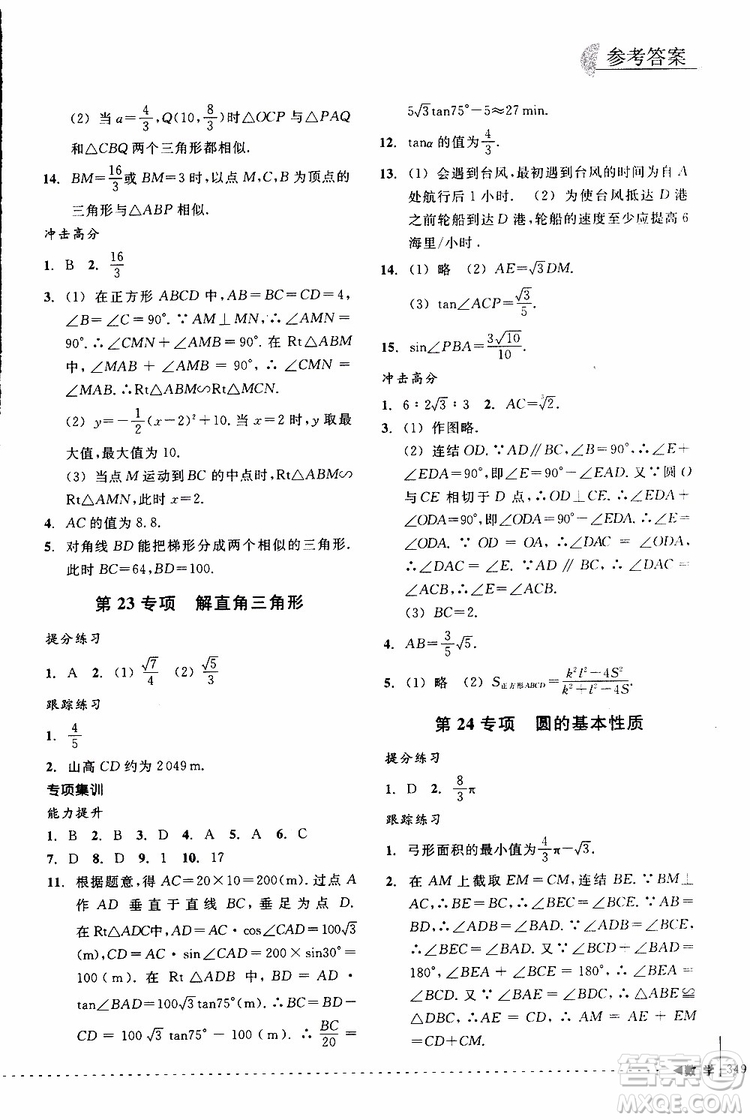 参考答案
(2) 当 a=4/3,Q(10,8/3)时△OCP 与△PAQ
和△CBQ 两个三角形都相似.
14. BM=16/3或 BM=3 时,以点 M,C,B 为顶点的
三角形与△ABP 相似.
冲击高分
1. B 2. 16/3
3. (1) 在正方形 ABCD 中,AB=BC=CD=4,
∠B=∠C=90°. ∵AM⊥MN,∴∠AMN=
90°. ∴∠CMN+∠AMB=90°. 在 Rt△ABM
中,∠MAB+∠AMB=90°,∴∠CMN=
∠MAB. ∴Rt△ABM∽Rt△MCN.
(2) y=-1/2(x-2)²+10. 当 x=2 时,y 取最
大值,最大值为 10.
(3) 当点 M 运动到 BC 的中点时,Rt△ABM∽
Rt△AMN,此时 x=2.
4. AC 的值为 8.8.
5. 对角线 BD 能把梯形分成两个相似的三角形.
此时 BC=64,BD=100.
第 23 专项 解直角三角形
提分练习
1. A 2. (1) √7/4 (2) √5/3
跟踪练习
1. 4/5
2. 山高 CD 约为 2 049 m.
专项集训
能力提升
1. B 2. B 3. D 4. A 5. A 6. C
7. D 8. D 9. 1 10. 17
11. 根据题意,得 AC=20×10=200(m). 过点 A
作 AD 垂直于直线 BC,垂足为点 D.
在Rt△ADC中,AD=AC·cos∠CAD=100√3
(m),CD=AC·sin∠CAD=200sin30°=
100(m). 在 Rt △ADB 中,BD=AD·
tan∠BAD=100√3tan75°(m),∴BC=BD-
CD=100√3tan75°-100(m). ∴BC/20=
5√3tan75°-5≈27 min.
12. tanα 的值为4/3.
13. (1) 会遇到台风,最初遇到台风的时间为自 A
处航行后 1 小时. (2) 为使台风抵达 D 港
之前轮船到达 D 港,轮船的速度至少应提高 6
海里/小时.
14. (1) 略 (2) AE=√3DM.
(3) tan∠ACP=√3/5.
15. sin∠PBA=3√10/10.
冲击高分
1. 6∶2√3∶3 2. AC=√2.
3. (1) 作图略.
(2) 连结 OD. ∵AD∥BC,∠B=90°,∴∠E+
∠EDA=90°=∠EDA=90°. 又∵圆 O
与 CE 相切于 D 点,∴OD⊥CE. ∴∠EDA+
∠ODA=90°=∠EDA=90°,∴∠E=
∠ODA. 又∵OD=OA,∴∠DAC=∠ODA,
∴∠DAC=∠E. ∵AD∥BE,∴∠DAC=
∠ACB,∴∠ACB=∠E.
(3) BC=2.
4. AB=3/5√5.
5. (1) 略 (2) S正方形ABCD=k²l²-4S²/k²+l²-4S.
第 24 专项 圆的基本性质
提分练习
1. D 2. 8/3π
跟踪练习
1. 弓形面积的最小值为4/3π-√3.
2. 在 AM 上截取 EM=CM,连结 BE. ∵BM⊥
AC,∴BE=BC. 又∵AB=BD,∴∠ADB=
∠BAD. ∵∠ADB=∠BCE,∴∠BCE=
∠BEC=∠BAD. 又∵∠BCD+∠BAD=
180°,∠BEA+∠BEC=180°,∴∠BEA=
∠BCD. 又∵∠BAE=∠BDC,∴△ABE≌
△DBC. ∴AE=CD. ∴AM=AE+EM=
DC+CM.
◀数学 349
答案圈
MXQE.COM